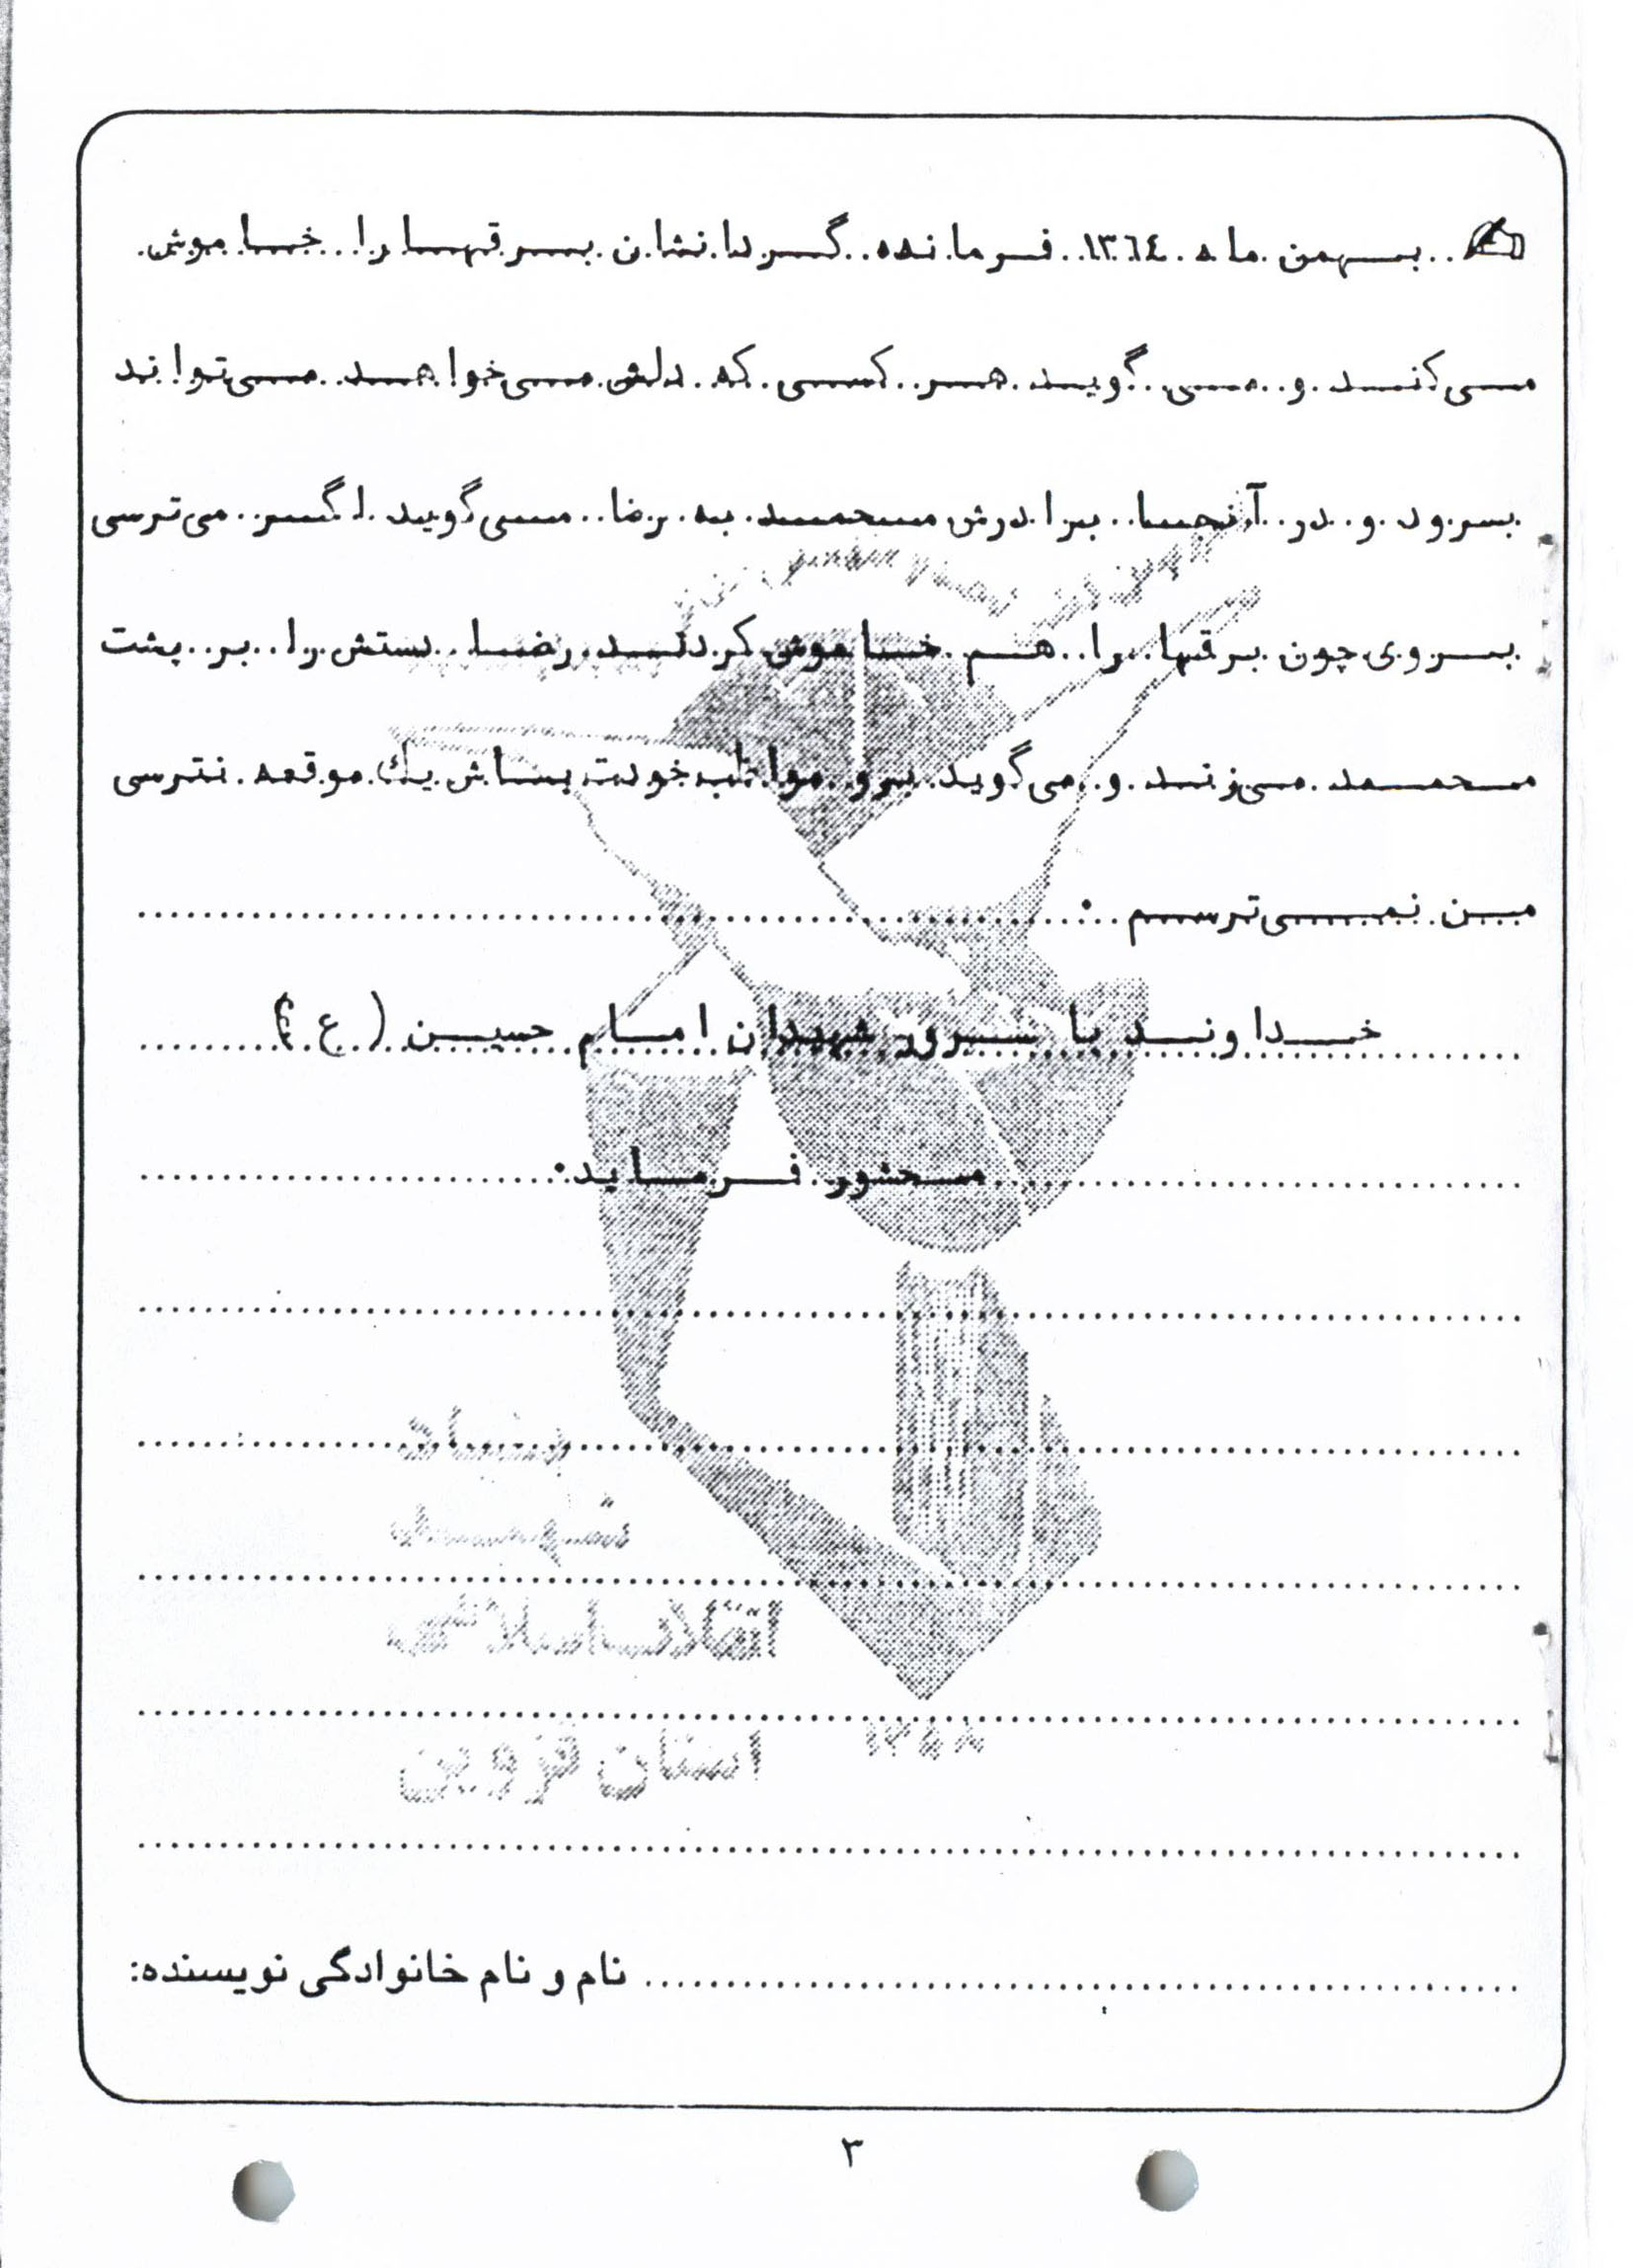 بهمن ماه ١٣٦٤ فرمانده گردانشان برقها را خاموش
می‌کند و می گوید هر کسی که دلش می‌خواهد می‌تواند
برود و در آنجا برادرش محمد به رضا می‌گوید اگر می‌ترسی
بروی چون برقها را هم خاموش کردند رضا دستش را بر پشت
محمد می‌زند و می‌گوید برو مواظب خودت باش یك موقعه نترسی
من نمی‌ترسم .
خداوند با سرور شهیدان امام حسین (ع)
محشور فرماید.
بنیاد
شهید
انقلاب اسلامی
استان قزوین
۱۳۵۸
نام و نام خانوادگی نویسنده:
۳